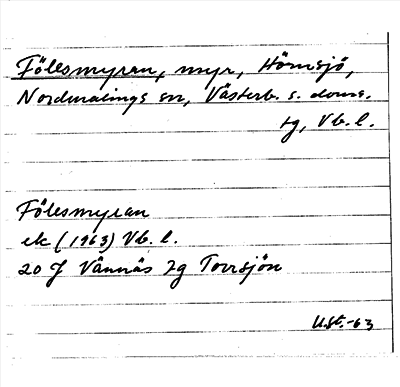 Fölesmyran, myr, Hörnsjö,
Nordmalings sn, Västerb. s. doms.
tg, Vb. l.
Fölesmyran
ek (1963) Vb. l.
20 J Vännäs 2g Torrsjön
U.St. -63